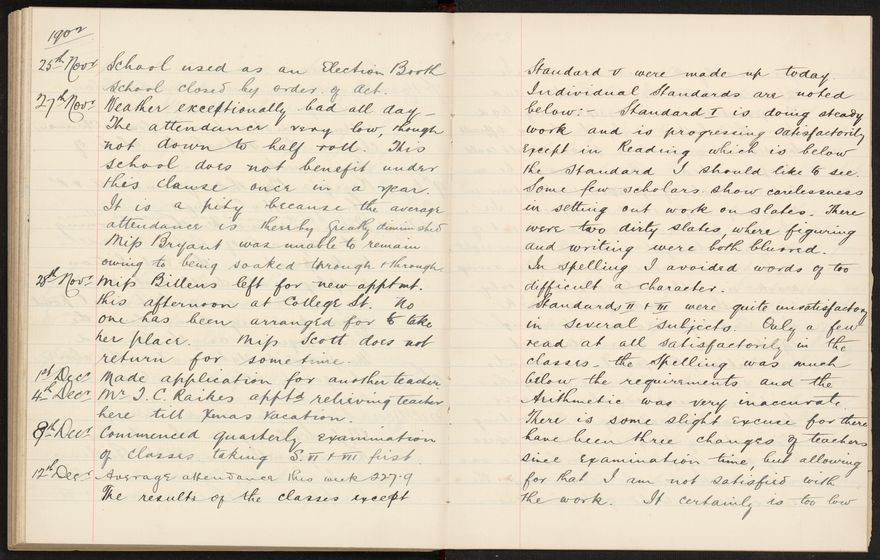 1902
25th Novr School used as an Election Booth
School closed by order of Act.
27th Novr Weather exceptionally bad all day -
The attendance very low, though
not down to half roll. This
school does not benefit under
this clause once in a year.
It is a pity because the average
attendance is thereby greatly diminished
Miss Bryant was unable to remain
owing to being soaked through & through
28th Novr Miss Bittens left for new apptmt.
this afternoon at College St. No
one has been arranged for to take
her place. Miss Scott does not
return for sometime.
1st Decr Made application for another teacher
4th Decr Mr I. C. Raikes apptd relieving teacher
here till Xmas vacation.
8th Decr Commenced quarterly examination
of classes taking S. VI & VII first.
12th Decr Average attendance this week 327.9
The results of the classes except
Standard V were made up today.
Individual Standards are noted
below:- Standard I is doing steady
work and is progressing satisfactorily
except in Reading which is below
the Standard I should like to see.
Some few scholars show carelessness
in setting out work on slates. There
were two dirty slates, where figuring
and writing were both blurred.
In spelling I avoided words of too
difficult a character.
Standards II & III were quite unsatisfactory
in several subjects. Only a few
read at all satisfactorily in the
classes - the spelling was much
below the requirements and the
Arithmetic was very inaccurate.
There is some slight excuse for there
have been three changes of teachers
since examination time, but allowing
for that I am not satisfied with
the work. It certainly is too low